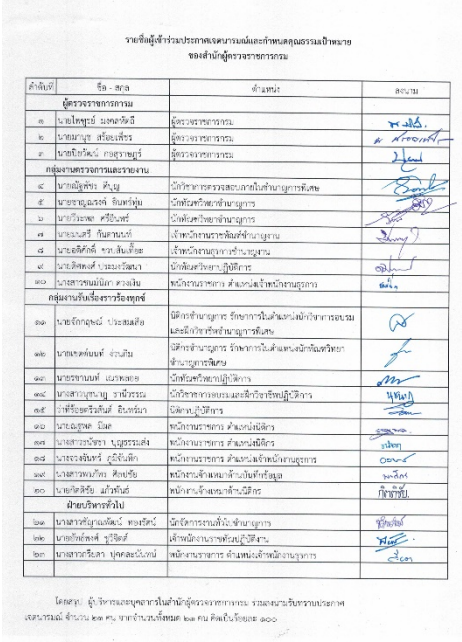 รายชื่อผู้เข้าร่วมประกาศเจตนารมณ์และกำหนดคุณธรรมเป้าหมาย
ของสำนักผู้ตรวจราชการกรม
ลำดับที่ ชื่อ - สกุล ตำแหน่ง ลงนาม
ผู้ตรวจราชการกรม
๑ นายไพฑูรย์ มงคลหัตถี ผู้ตรวจราชการกรม
๒ นายมานุช สร้อยเพ็ชร ผู้ตรวจราชการกรม
๓ นายปิยวัฒน์ กอสุราษฎร์ ผู้ตรวจราชการกรม
กลุ่มงานตรวจการและรายงาน
๔ นายณัฐพัชร ดีบุญ นักวิชาการตรวจสอบภายในชำนาญการพิเศษ
๕ นายชาญณรงค์ อินทร์ทุ่ม นักทัณฑวิทยาชำนาญการ
๖ นายวีระพล ศรีอินทร์ นักทัณฑวิทยาชำนาญการ
๗ นายมนตรี กันตานนท์ เจ้าพนักงานราชทัณฑ์ชำนาญงาน
๘ นายอดิศักดิ์ เจ้าพนักงานธุรการชำนาญงาน
๙ นายทิศพงศ์ ประมงวัฒนา นักทัณฑวิทยาปฏิบัติการ
๑๐ นางสาวชนม์นิภา ดวงเงิน พนักงานราชการ ตำแหน่งเจ้าพนักงานธุรการ
กลุ่มงานรับเรื่องราวร้องทุกข์
๑๑ นายจักกฤษณ์ ประสมเสือ นิติกรชำนาญการ รักษาการในตำแหน่งนักวิชาการอบรม
และฝึกวิชาชีพชำนาญการพิเศษ
๑๒ นายเขตต์นนท์ ง่วนกิม นิติกรชำนาญการ รักษาการในตำแหน่งนักทัณฑวิทยา
ชำนาญการพิเศษ
๑๓ นายรชานนท์ เนรพลอย นักทัณฑวิทยาปฏิบัติการ
๑๔ นางสาวนุชนาฏ ธานีวรรณ นักวิชาการอบรมและฝึกวิชาชีพปฏิบัติการ
๑๕ ว่าที่ร้อยตรีวสันต์ อินทร์มา นิติกรปฏิบัติการ
๑๖ นายณฐพล มีผล พนักงานราชการ ตำแหน่งนิติกร
๑๗ นางสาวธนัชชา บุญธรรมส่ง พนักงานราชการ ตำแหน่งนิติกร
๑๘ นางดวงจันทร์ ภูมิจันทึก พนักงานราชการ ตำแหน่งเจ้าพนักงานธุรการ
๑๙ นางสาวพนภัทร ศิลปชัย พนักงานจ้างเหมาด้านบันทึกข้อมูล
๒๐ นายกิตติชัย แก้วพันธ์ พนักงานจ้างเหมาด้านนิติกร กิตติชัย
ฝ่ายบริหารทั่วไป
๒๑ นางสาวชัญาณพัฒน์ ทองรัตน์ นักจัดการงานทั่วไปชำนาญการ
๒๒ นายยัทธ์พงศ์ ชูวิจิตต์ เจ้าพนักงานราชทัณฑ์ปฏิบัติงาน
๒๓ นางสาวกรียดา บุคคละนันทน์ พนักงานราชการ ตำแหน่งเจ้าพนักงานธุรการ
โดยสรุป ผู้บริหารและบุคลากรในสำนักผู้ตรวจราชการกรม ร่วมลงนามรับทราบประกาศ
เจตนารมณ์ จำนวน ๒๓ คน จากจำนวนทั้งหมด ๒๓ คน คิดเป็นร้อยละ ๑๐๐